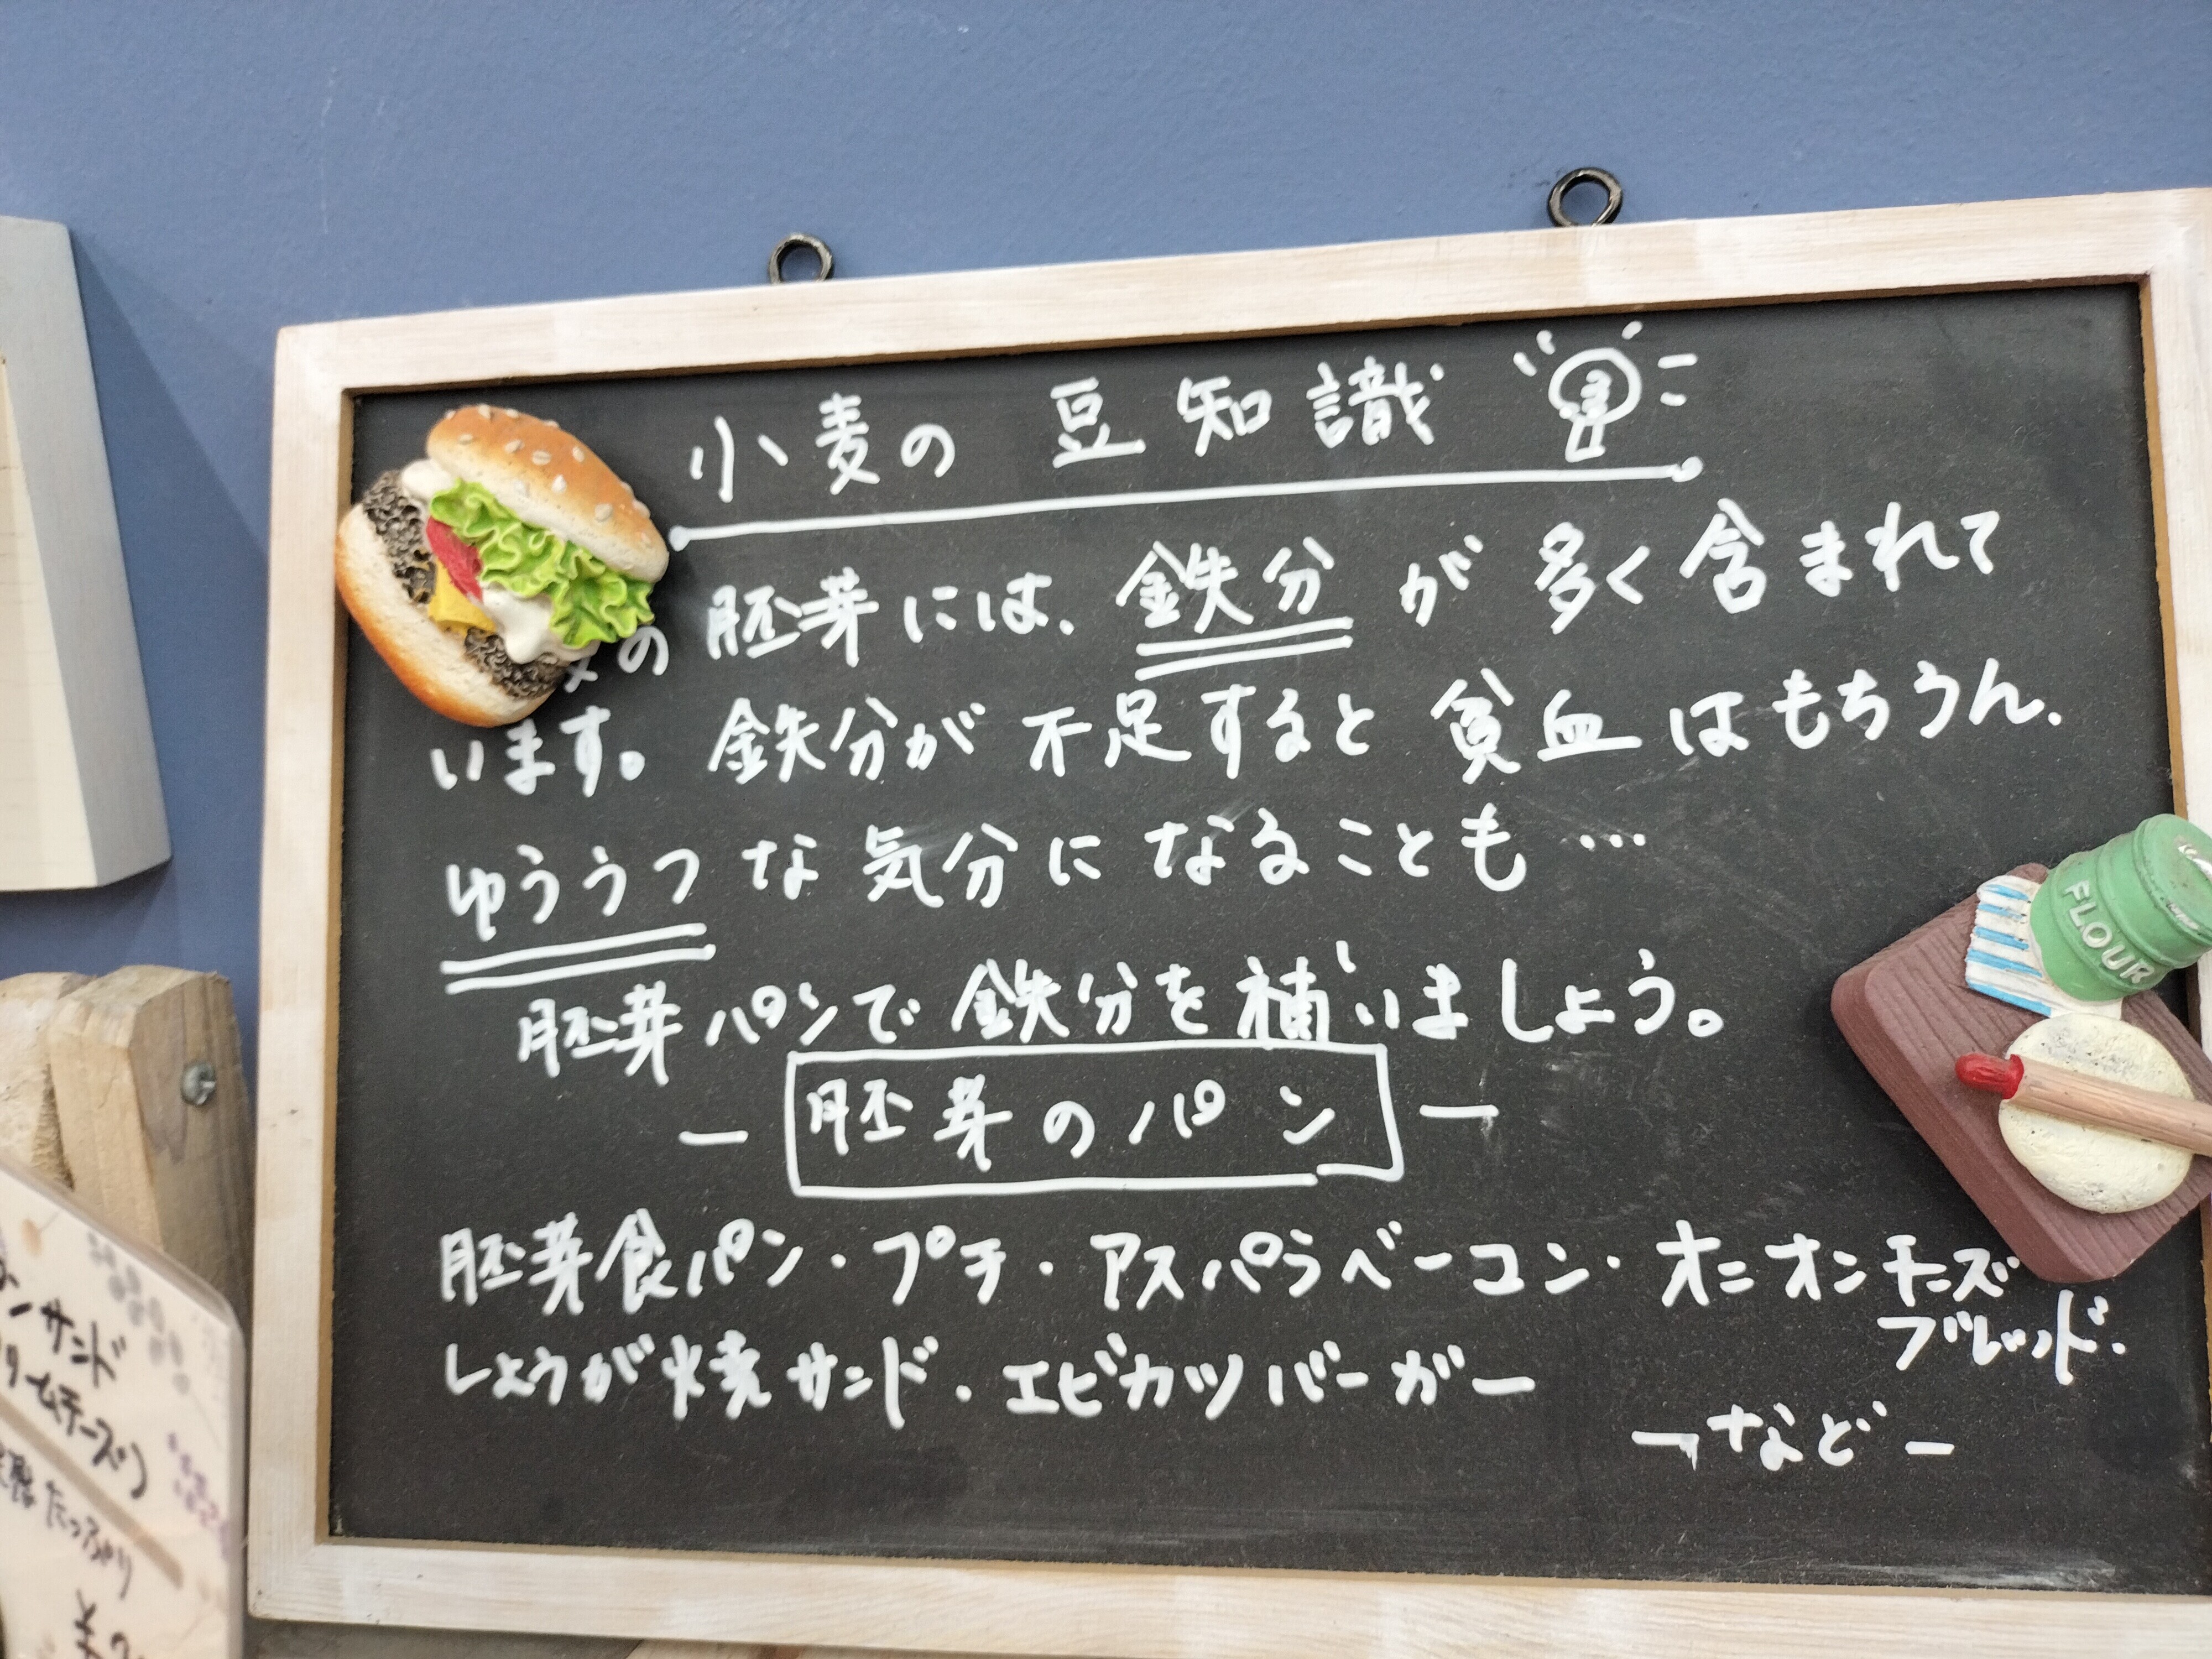 小麦の 豆知識
の 胚芽には、鉄分 が 多く含まれて
います。 鉄分が 不足すると 貧血 はもちろん、
ゆううつ な 気分 に なることも …
胚芽パンで 鉄分を 補いましょう。
ー 胚芽のパン ー
胚芽食パン・プチ・アスパラベーコン・オニオンチーズ
ブレッド・
しょうが焼サンド・エビカツバーガー
ーなどー
FLOUR
サンド
リームチーズ)
たっぷり
¥